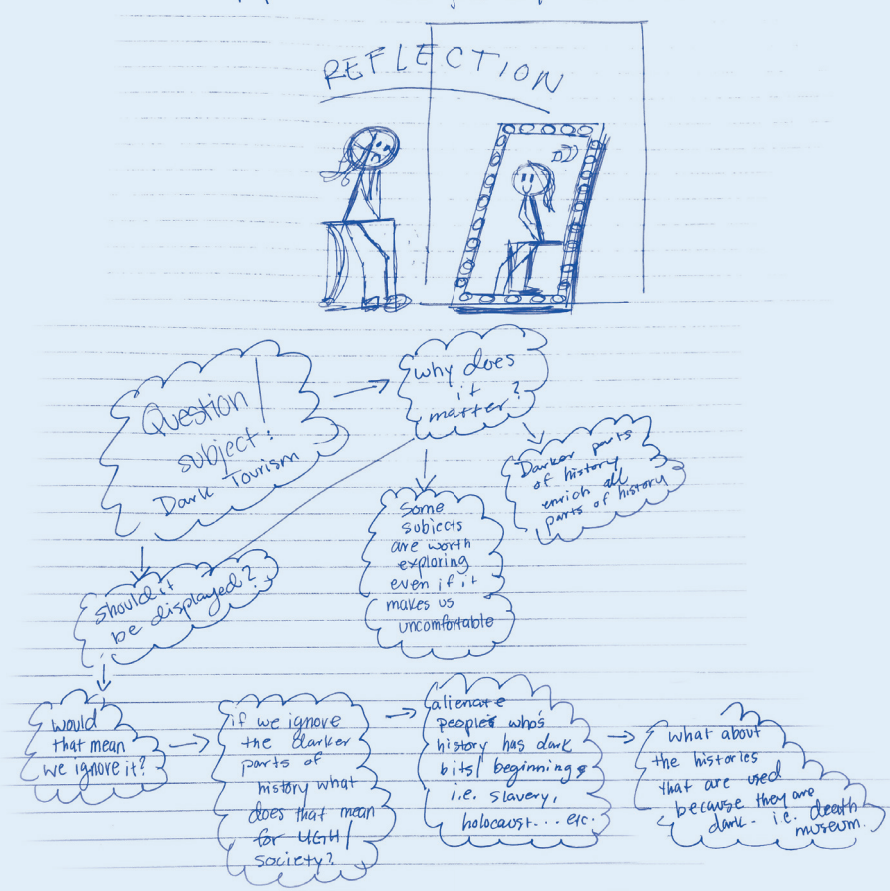 REFLECTION
Question/
subject:
Dark Tourism
why does
it
matter?
Darker parts
of history
enrich all
parts of history
Some
subjects
are worth
exploring
even if it
makes us
uncomfortable
should it
be displayed?
would
that mean
we ignore it?
if we ignore
the darker
parts of
history what
does that mean
for UGH/
society?
alienate
people's who's
history has dark
bits/beginnings
i.e. slavery,
holocaust... etc.
what about
the histories
that are used
because they are
dark. i.e. death
museum.